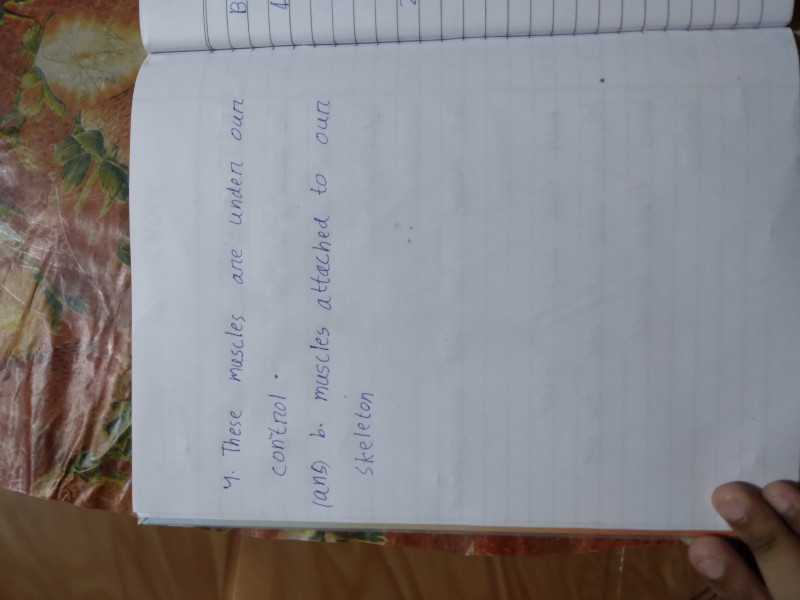 4. These muscles are under our
control.
(ans) b. muscles attached to our
skeleton
B.